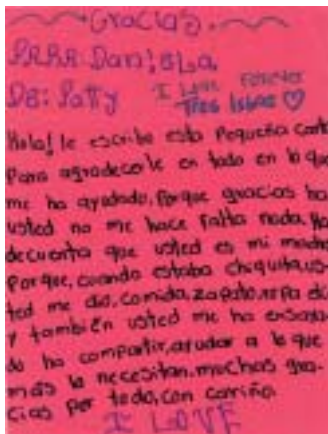 Gracias.
PARA: Daniela.
DE: Patty
I Love Forever
Tres Islas
Hola! le escribo esta Pequeña carta
Para agradecerle en todo en lo que
me ha ayudado, Porque gracias ha
usted no me hace falta nada, Ha
decuenta que usted es mi madre
Porque, cuando estaba chiquita, us-
ted me dio, comida, zapato, ropa
y también usted me ha enseña-
do ha compartir, ayudar a lo que
más lo necesitan, muchas gra-
cias por todo, con cariño.
I LOVE